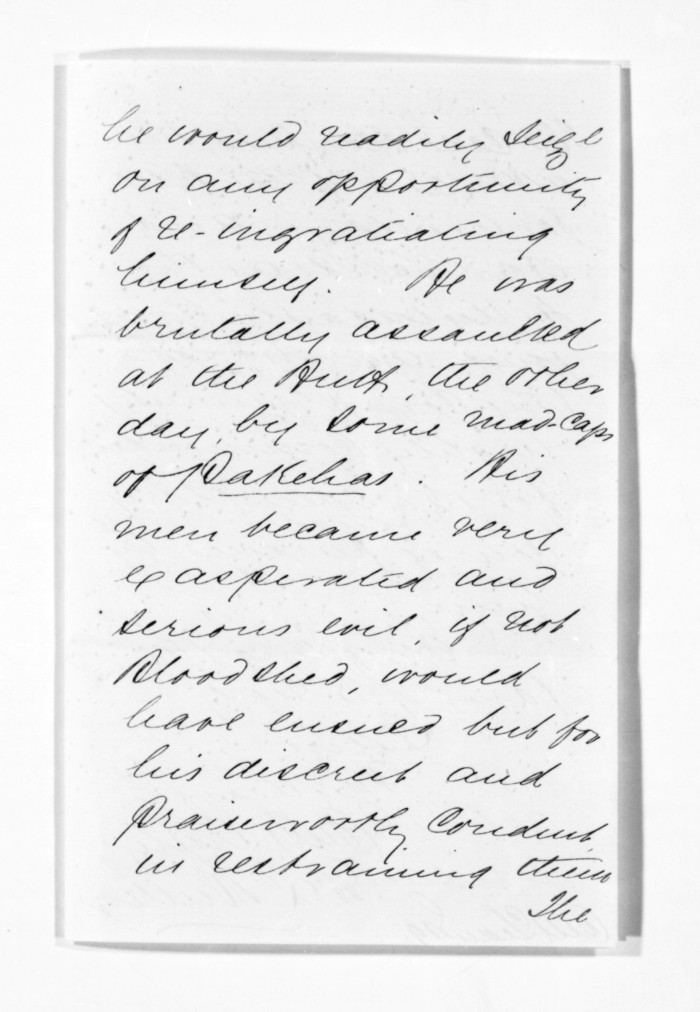 he would readily seize
on any opportunity
of re-ingratiating
himself. He was
brutally assaulted
at the Hutt, the other
day, by some mad-caps
of Pakehas. His
men became very
exasperated and
serious evil, if not
Bloodshed, would
have ensued but for
his discreet and
praiseworthy conduct,
in restraining them
The